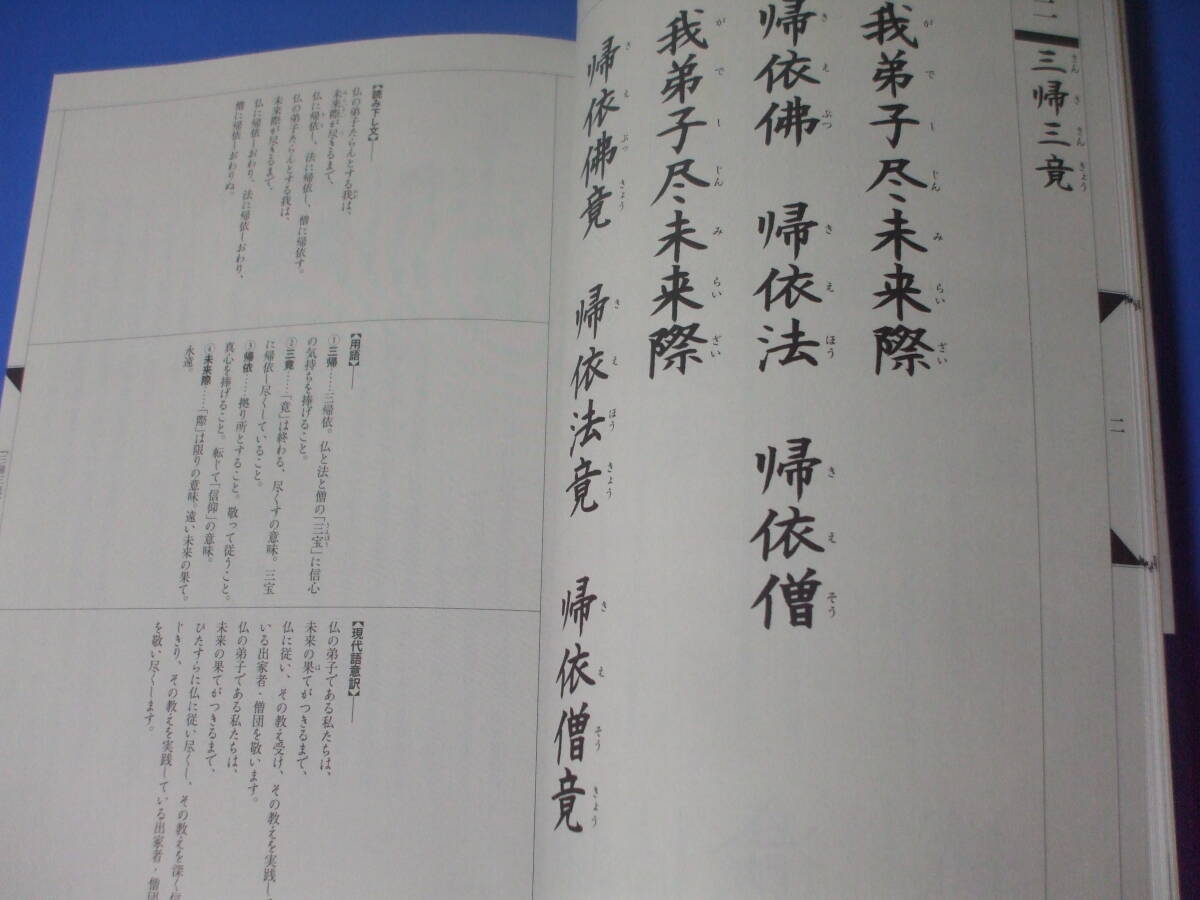 二
三帰三竟
さんきさんきょう
我弟子尽未来際
がでしじんみらいざい
帰依佛 帰依法 帰依僧
きえぶつ きえほう きえそう
我弟子尽未来際
がでしじんみらいざい
帰依佛竟 帰依法竟 帰依僧竟
きえぶっきょう きえほうきょう きえそうきょう
二
【読み下し文】
仏の弟子たらんとする我は、
未来際が尽きるまで、
仏に帰依し、法に帰依し、僧に帰依す。
仏の弟子たらんとする我は、
未来際が尽きるまで、
仏に帰依しおわり、法に帰依しおわり、
僧に帰依しおわりぬ。
【用語】
①三帰……三帰依。仏と法と僧の「三宝」に信心
の気持ちを捧げること。
②三竟……「竟」は終わる、尽くすの意味。三宝
に帰依し尽くしていること。
③帰依……拠り所とすること。敬って従うこと。
真心を捧げること。転じて「信仰」の意味。
④未来際……「際」は限りの意味。遠い未来の果て。
永遠。
【現代語意訳】
仏の弟子である私たちは、
未来の果てがつきるまで、
仏に従い、その教え受け、その教えを実践し
いる出家者・僧団を敬います。
仏の弟子である私たちは、
未来の果てがつきるまで、
ひたすらに仏に従い尽くし、その教えを深く
じきり、その教えを実践している出家者・僧団
を敬い尽くします。